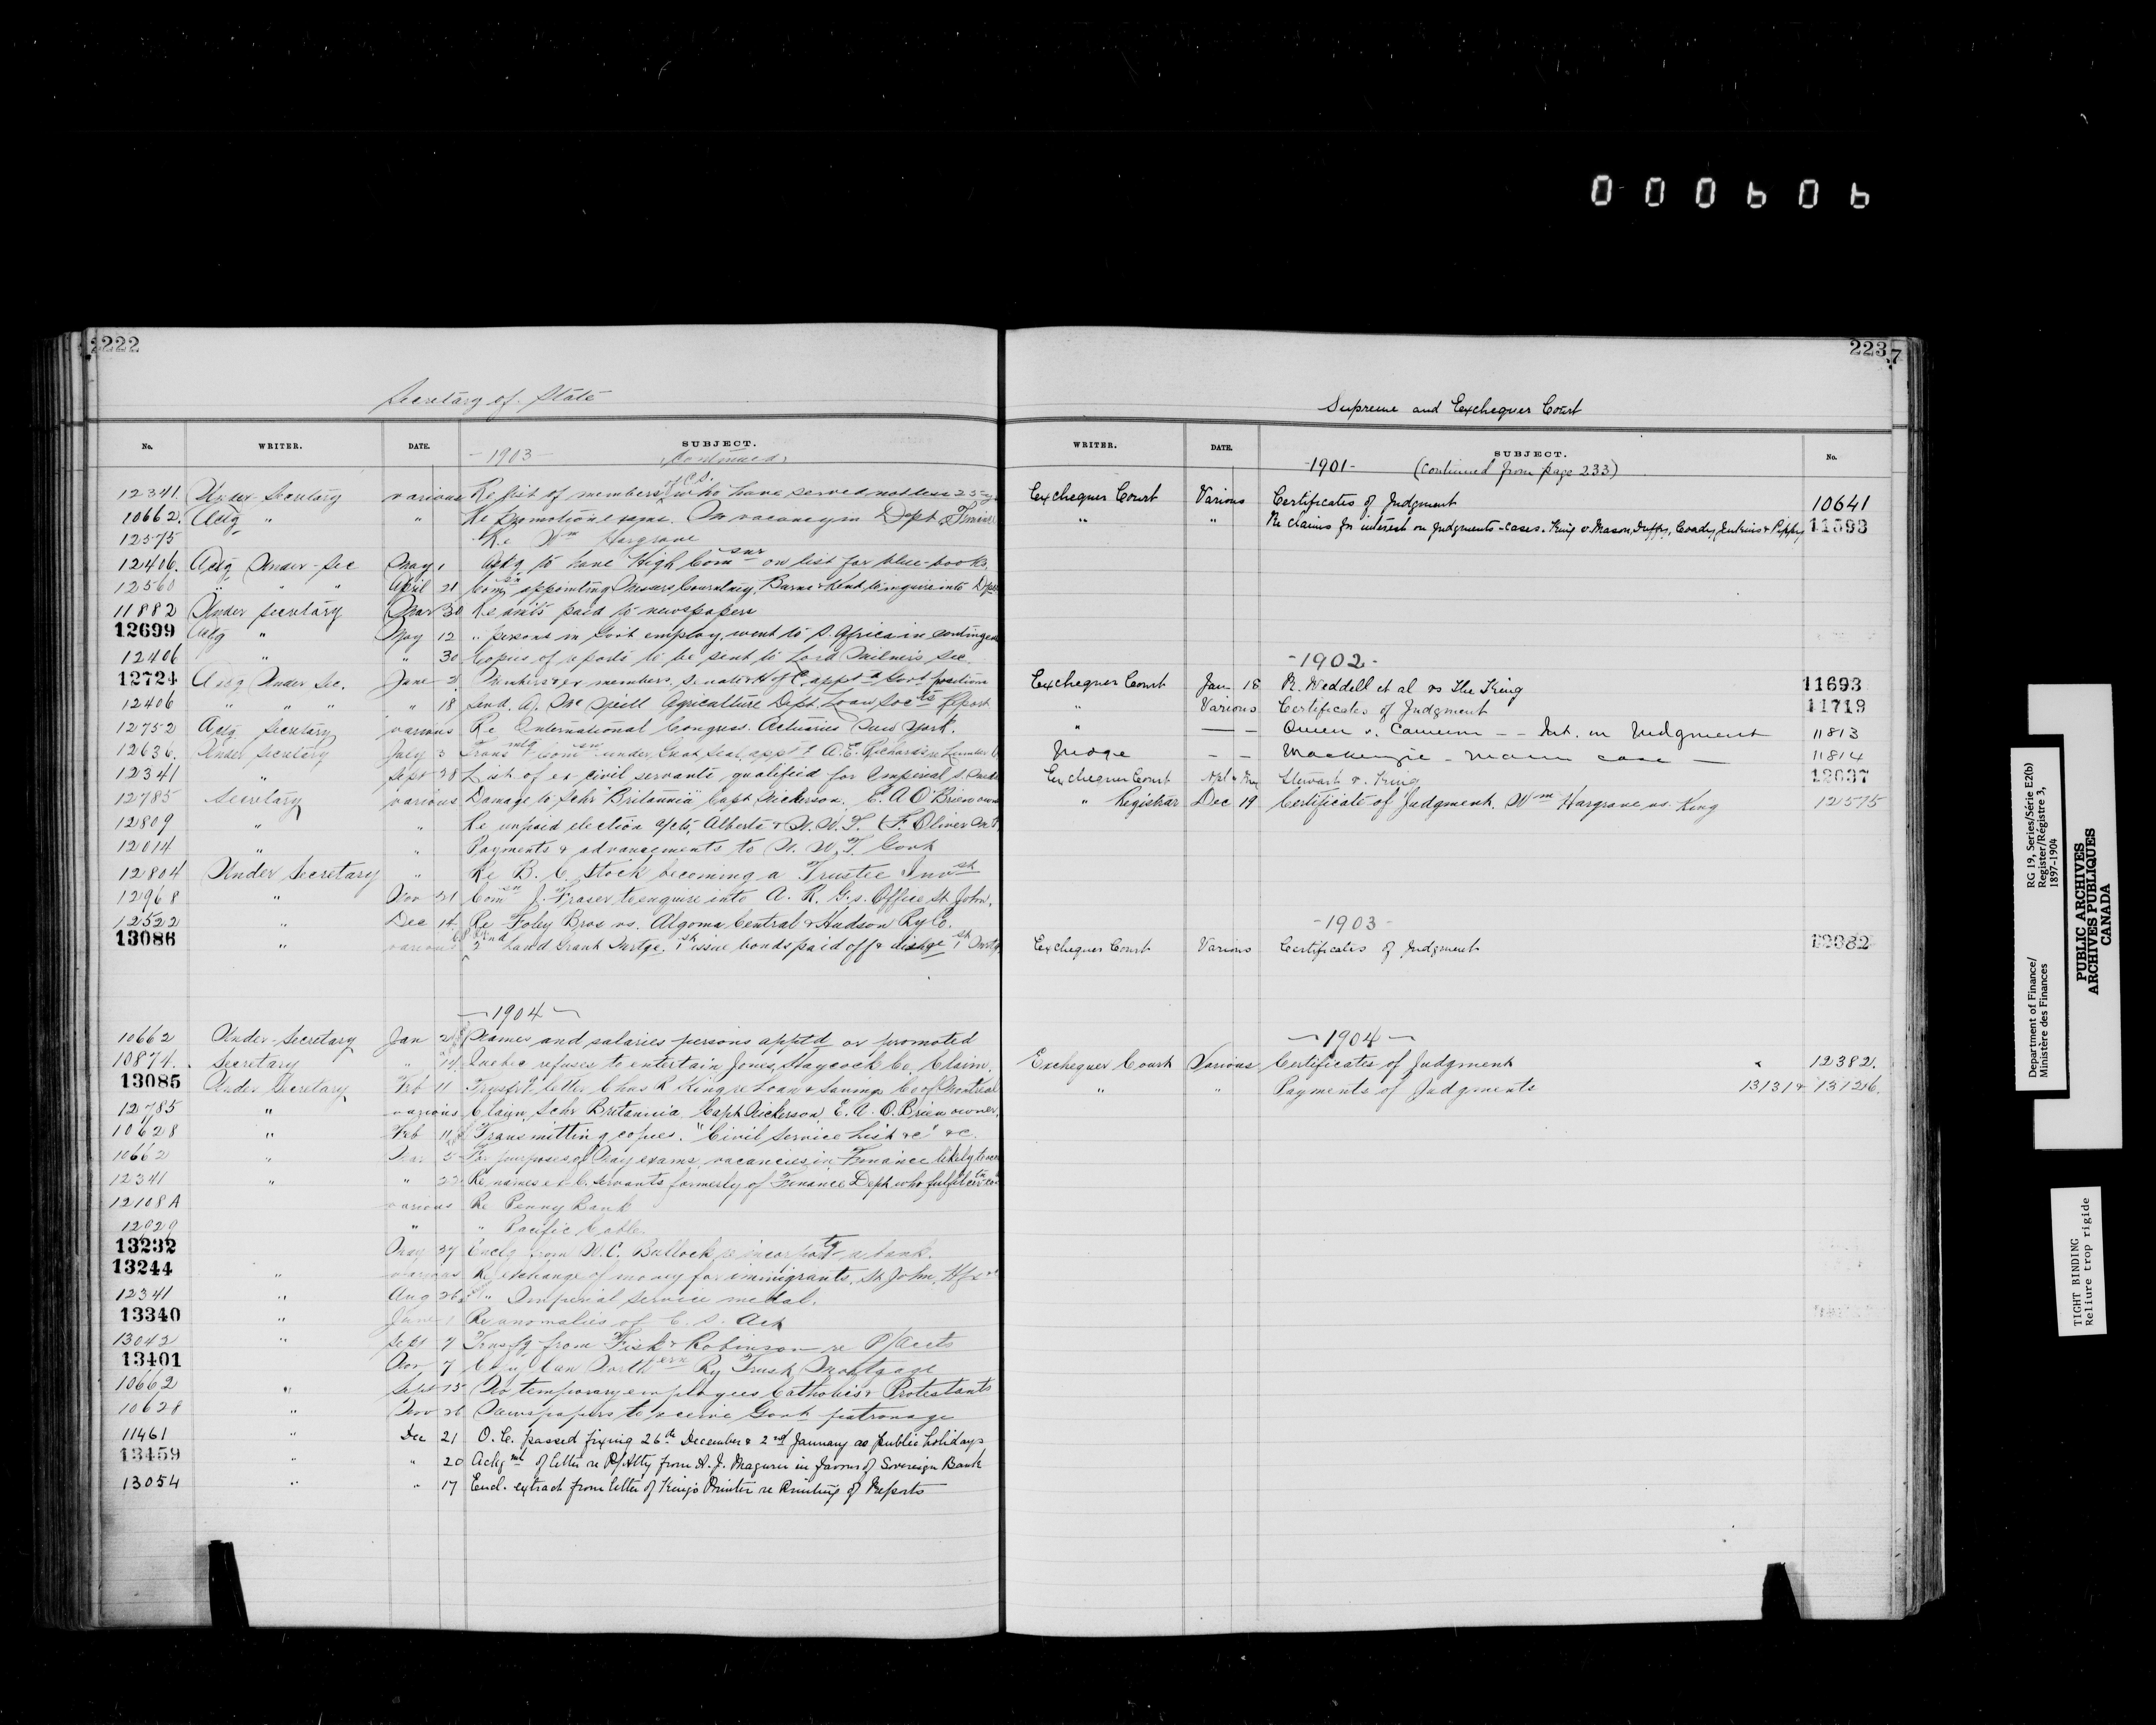 000606
222
Secretary of State
No. WRITER. DATE. SUBJECT.
-1903- (Continued)
12341. Under-Secretary various Re list of members of C.S. who have served not less 25
10662. Actg " " Re promotion exams. On vacancy in Dept Finance
12575 Re Wm Hargrave
12406. Actg Under-Sec May 1 Askg to have High Comsnr on list for blue-books.
12560 " " " April 21 Comsn appointing Messrs Courtney, Barne & Kent to inquire into Dept
11882 Under Secretary Mar 30 Re amts paid to newspapers
12699 Actg " May 12 " persons in Govt employ, went to S. Africa in contingen
12406 " " 30 Copies of reports to be sent to Lord Milner's Sec.
12724 Actg Under Sec. June 2 Members & ex members, Senate & H of C, apptd to Govt position
12406 " " " " 18 Send A. J. McNeill Agriculture Dept. Loan Socts Report
12752 Actg Secretary various Re International Congress Actuaries New York.
12636. Under Secretary July 3 Transmtg Comsn under Great Seal, appt A. E. Richards
12341 " Sept 28 List of ex-civil servants qualified for Imperial S.
12785 Secretary various Damage to Schr "Britannia" Capt Nickerson. E. A O'Brien own
12809 " " Re unpaid election a/cts, Alberta & N. W. T. (F. Oliver
12014 " " Payments & advancements to N. W. T. Govt
12804 Under Secretary " Re B. C. Stock becoming a Trustee Invst
12968 " Nov 21 Comsn J. Fraser to enquire into A. R. G.s. Office St John.
12522 Dec 14 Re Foley Bros vs. Algoma Central & Hudson Ry Co.
13086 " various 2nd land Grant Mortge. 1st issue bonds paid off & dischge 1st Mortg
-1904-
10662 Under-Secretary Jan 2 Names and salaries persons apptd or promoted
10874. Secretary " 14 Quebec refuses to entertain Jones, Haycock Co. Claim.
13085 Under Secretary Feb 11 Transfrg letter Chas R King re Loan & Savings Co of Montreal
12785 " various Claim, Schr Britannia, Capt Nickerson, E. A. O. Brien owner,
10628 " Feb 11 Transmitting copies. "Civil Service List &c" &c.
10662 " Mar 5 For purposes of May exams, vacancies in Finance likely to occ
12341 " " 22 Re names ex C. Servants formerly of Finance Dept who fulfil
12108A various Re Penny Bank
12929 " " Pacific Cable.
13232 May 27 Enclg from W. C. Bullock re incorportg a bank.
13244 " various Re exchange of money for immigrants, St John, Hfx &c
12341 " Aug 26 " Imperial service medal.
13340 " June 1 Re anomalies of C. S. Act
13042 " Sept 7 Trnsfg from Fisk & Robinson re P/Accts
13401 Nov 7 Copy Can Northern Ry Trust Mortgage
10662 " Sept 15 No temporary employees Catholics & Protestants
10628 " Nov 26 Newspapers to receive Govt patronage
11461 " Dec 21 O. C. passed fixing 26th December & 2nd January as public holidays
13459 " " 20 Ackgmt of letter re P/Atty from H. J. Maguire in favour of Sovereign Bank
13054 " " 17 Encl. extract from letter of King's Printer re Printing of Reports
223
7
Supreme and Exchequer Court
WRITER. DATE. SUBJECT. No.
-1901- (Continued from page 233)
Exchequer Court Various Certificates of Judgment 10641
" " Re claims for interest on Judgments-cases. King v. Mason, Duffy, Coady, Jenkins & Pippy 11593
-1902-
Exchequer Court Jan 18 R. Weddell et al vs The King 11693
" Various Certificates of Judgment 11719
" — — Queen v. Cameron -- Int. on Judgment 11813
Judge - - Mackenzie - Mann case — 11814
Exchequer Court Stewart v. King 12037
" Registrar Dec 19 Certificate of Judgment. Wm Hargrave vs. King 12575
-1903-
Exchequer Court Various Certificates of Judgment 12382
-1904-
Exchequer Court Various Certificates of Judgment 12382.
" " Payments of Judgments 13131 & 13126.
Department of Finance/ RG 19, Series/Série E2(b)
Ministère des Finances Register/Régistre 3,
1897-1904
PUBLIC ARCHIVES
ARCHIVES PUBLIQUES
CANADA
TIGHT BINDING
Reliure trop rigide